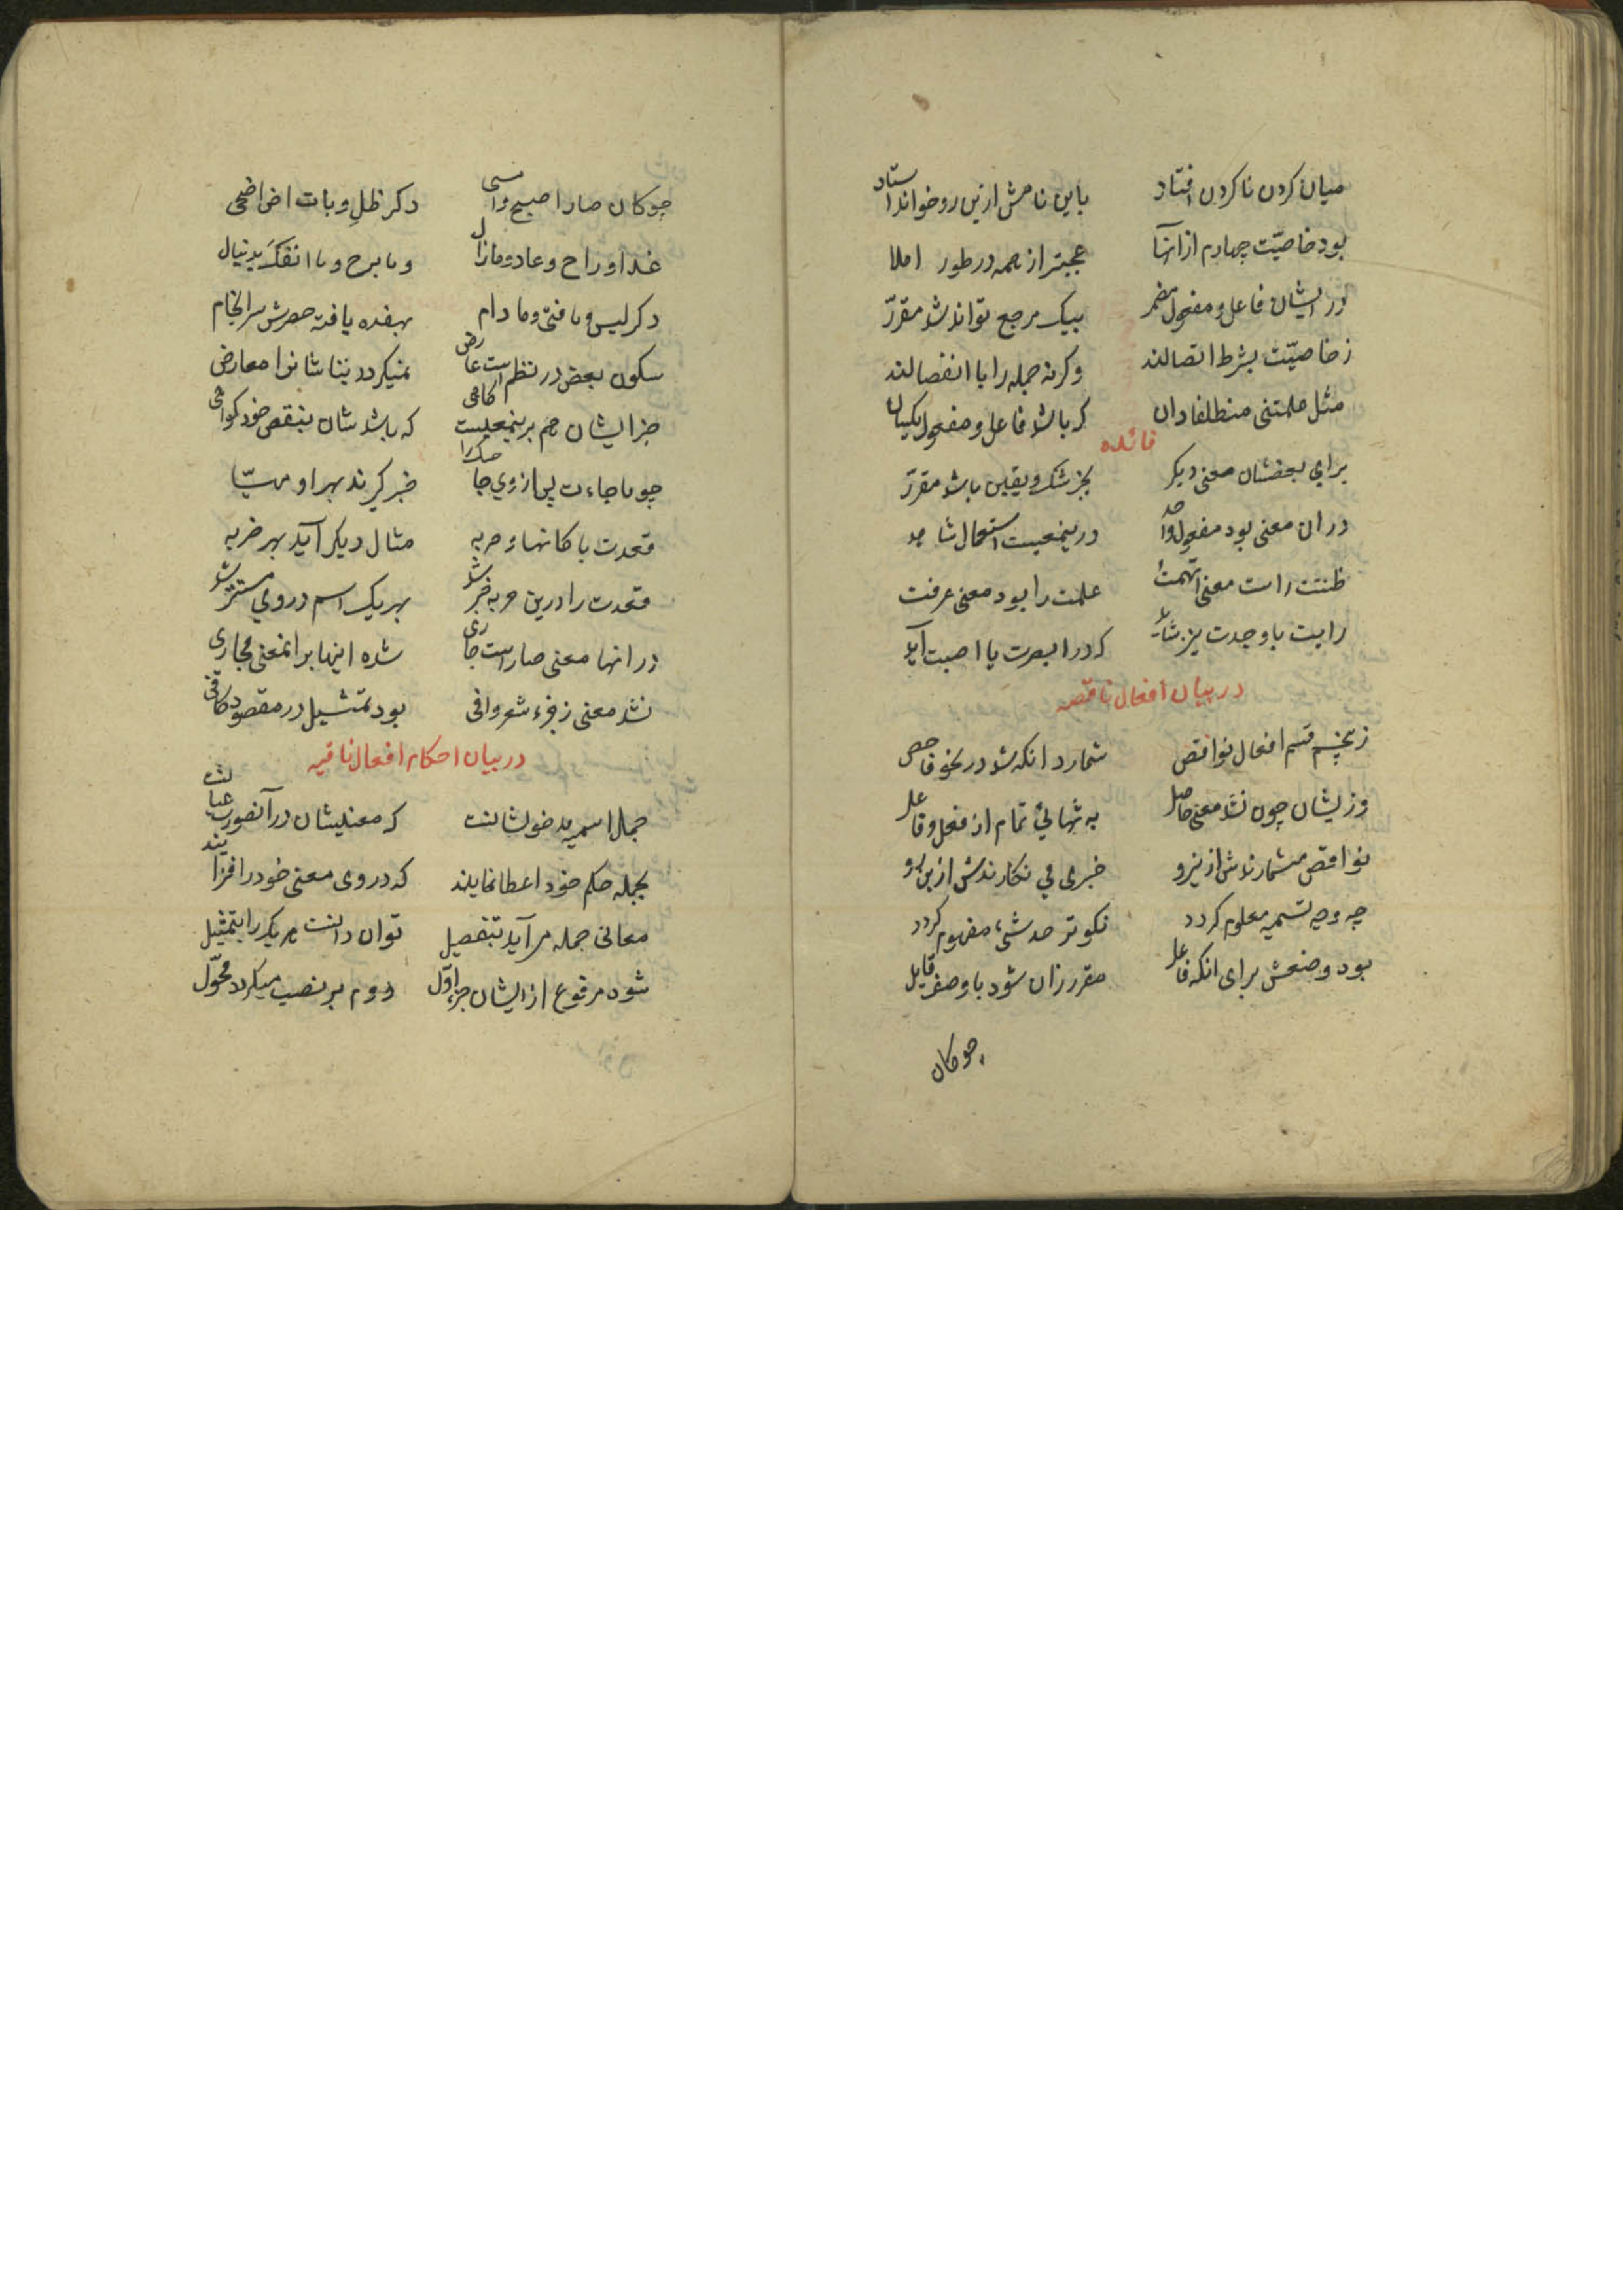 میان کردن ناکردن افتاد باین نامش ازین رو خواند استاد
بود خاصیّت چهارم از انها عجبتر از همه در طور املا
در ایشان فاعل و مفعول مضمر بیک مرجع تواند شد مقرّر
ز خاصیّت بشرط اتصالند وکرنه جمله را با انفصالند
مثل علمتنی منطلقا دان که باشد فاعل و مفعول یکسان
فائده
برای بعضشان معنی دیکر بجز شک و یقین باشد مقرّر
در ان معنی بود مفعول واحد درینمعنیست استعمال شاهد
ظننت راست معنی اتهمت علمت را بود معنی عرفت
رایت با وجدت نیز شاید که در ابصرت یا اصبت آید
در بیان افعال ناقصه
ز پنجم قسم افعال نواقص شمارد انکه شد در نحو فاحص
وزیشان چون نشد معنی حاصل به تنهائی تمام از فعل و فاعل
نواقص میشمارندش ازینرو خبر می نکارندش ازین رو
چه وجه تسمیه معلوم کردد نکوتر حد شیء مفهوم کردد
بود وضعش برای انکه فاعل مقرر زان شود با وصف قابل
چو کان
چو کان صار اصبح و امسی دکر ظل و بات اض اضحی
غدا و راح و عاد و مازال و ما برح و ما انفک بدنبال
دکر لیس و ما فتئ و ما دام بهفده یافته حصرش سرانجام
سکون بعض در نظم است عارض نمیکردد بناشانرا معارض
جز ایشان هم برینمعنیست اکاهی که باشد شان بنقص خود کواهی
چو ما جاءت پس از وی حاجتک را خبر کیرند بهر او مهیّا
قعدت با کانها و حربه مثال دیکر آید بهر ضربه
قعدت را درین حربه خبر شد بهر یک اسم در وی مستتر شد
در انها معنی صار است جاری شده اینها بر انمعنی مجاری
نشد معنی ز فرء شعر وافی بود تمثیل در مقصود کافی
در بیان احکام افعال ناقصه
جمل اسمیه مدخولشانست که معنیشان در آنصورت عیانست
بجمله حکم خود اعطا نمایند که در وی معنی خود را فزایند
معانی جمله مر آید بتفصیل توان دانست هر یک را بتمثیل
شود مرفوع از ایشان جزء اوّل دوم بر نصب میکردد محوّل